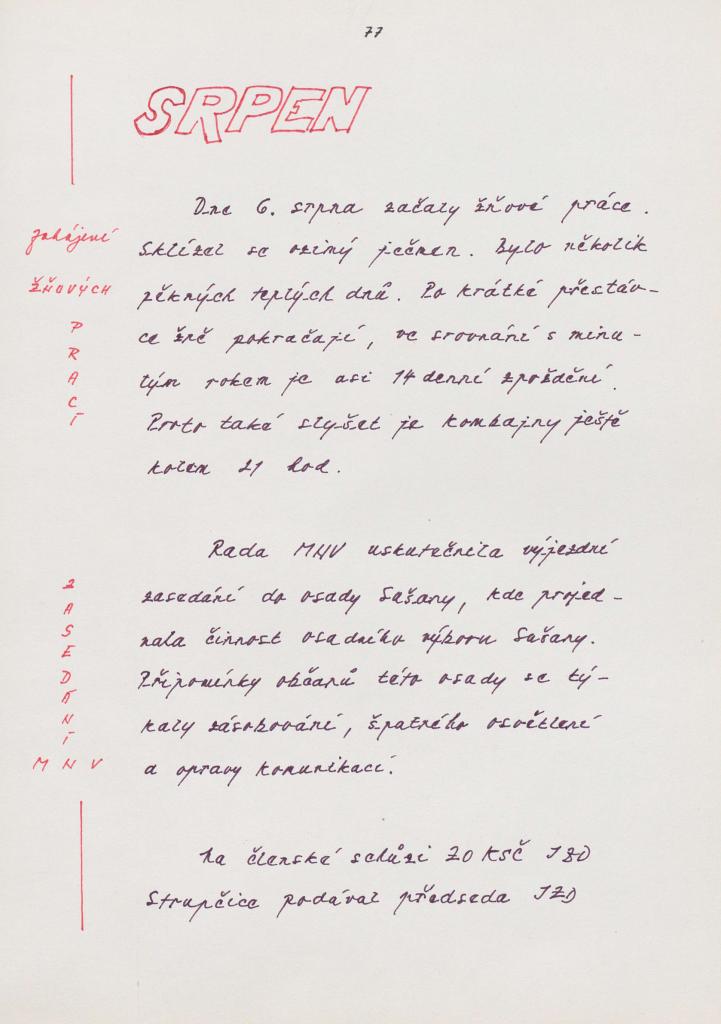 77
SRPEN
Dne 6. srpna začaly žňové práce.
zahájení
Sklízel se ozimý ječmen. Bylo několik
ŽŇOVÝCH
pěkných teplých dnů. Po krátké přestáv-
PRACÍ
ce žně pokračají, ve srovnání s minu-
lým rokem je asi 14 denní zpoždění.
Proto také slyšet je kombajny ještě
kolem 21 hod.
Rada MNV uskutečnila výjezdní
ZASEDÁNÍ
zasedání do osady Sušany, kde projed-
nala činnost osadního výboru Sušany.
Připomínky občanů této osady se tý-
kaly zásobování, špatného osvětlení
MNV
a opravy komunikací.
Na členské schůzi ZO KSČ JZD
Strupčice podával předseda JZD